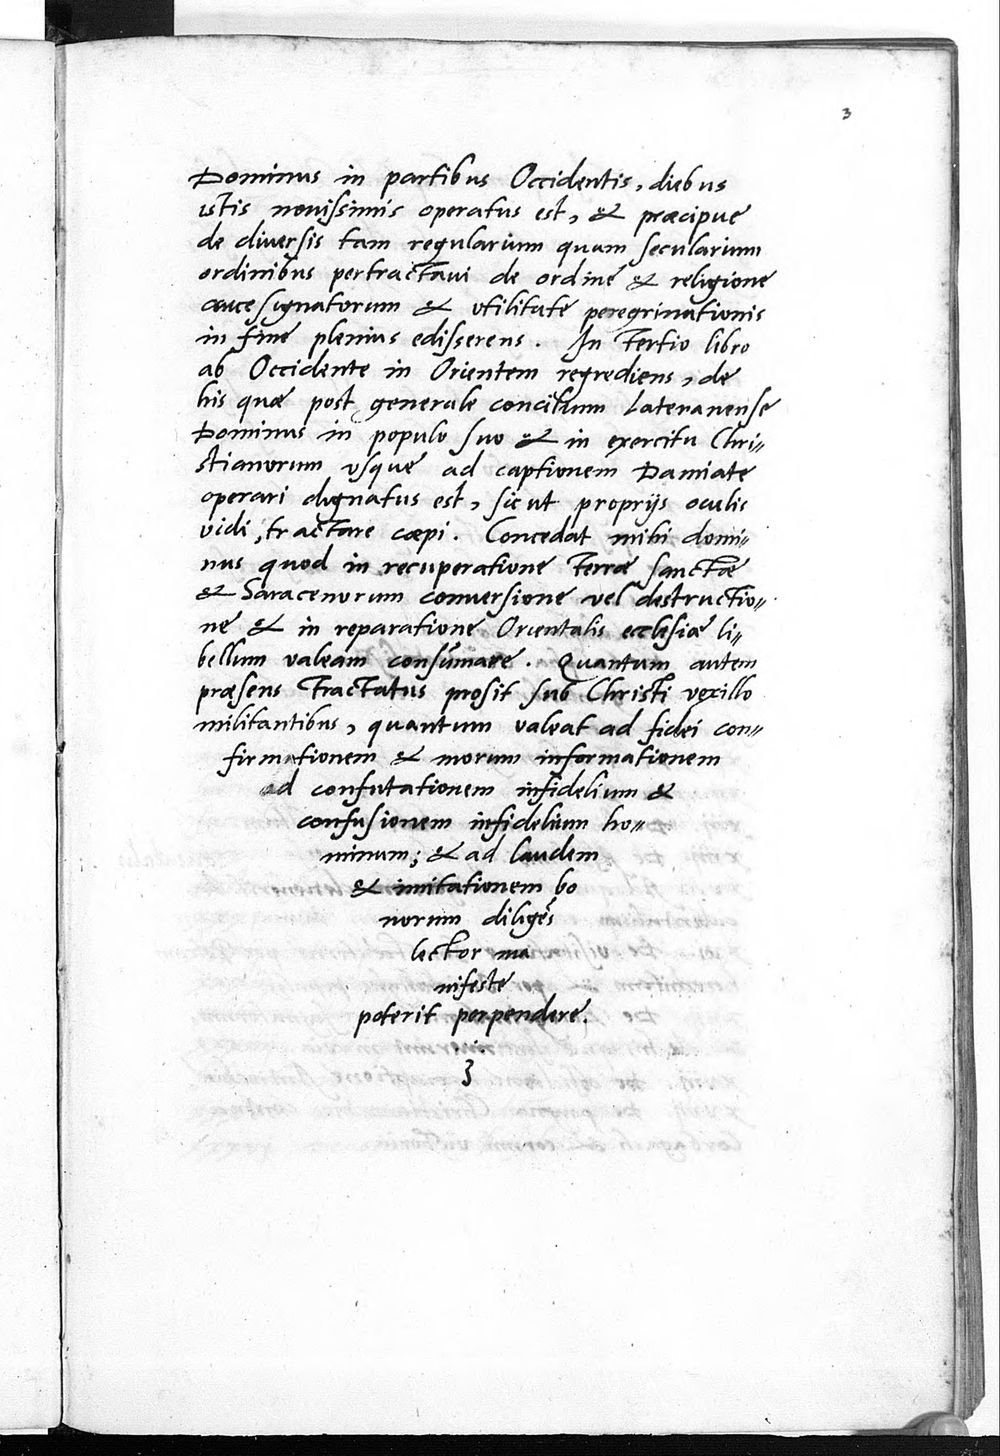 3
Dominus in partibus Occidentis, diebus
istis nouissimis operatus est, & præcipue
de diuersis tam regularium quam secularium
ordinibus pertractaui de ordine & religione
crucesignatorum & vtilitate peregrinationis
in fine plenius edisserens. In Tertio libro
ab Occidente in Orientem regrediens, de
his quæ post generale concilium Lateranense
Dominus in populo suo & in exercitu Chri〃
stianorum vsque ad captionem Damiate
operari dignatus est, sicut proprijs oculis
vidi, tractare cœpi. Concedat mihi domi〃
nus quod in recuperatione Terræ sanctæ
& Saracenorum conuersione vel destructio〃
ne & in reparatione Orientalis ecclesiæ li〃
bellum valeam consūmare. Quantum autem
præsens Tractatus prosit sub Christi vexillo
militantibus, quantum valeat ad fidei con〃
firmationem & morum informationem
ad confutationem infidelium &
confusionem infidelium ho〃
minum; & ad laudem
& imitationem bo
norum diligēs
lector ma
nifeste
poterit perpendere.